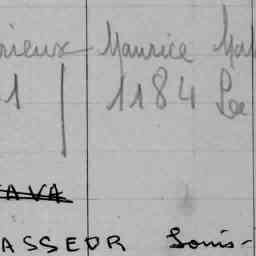 rieux Maurice Mal
1 | 1184 Le
AVA
ASSEUR Louis-